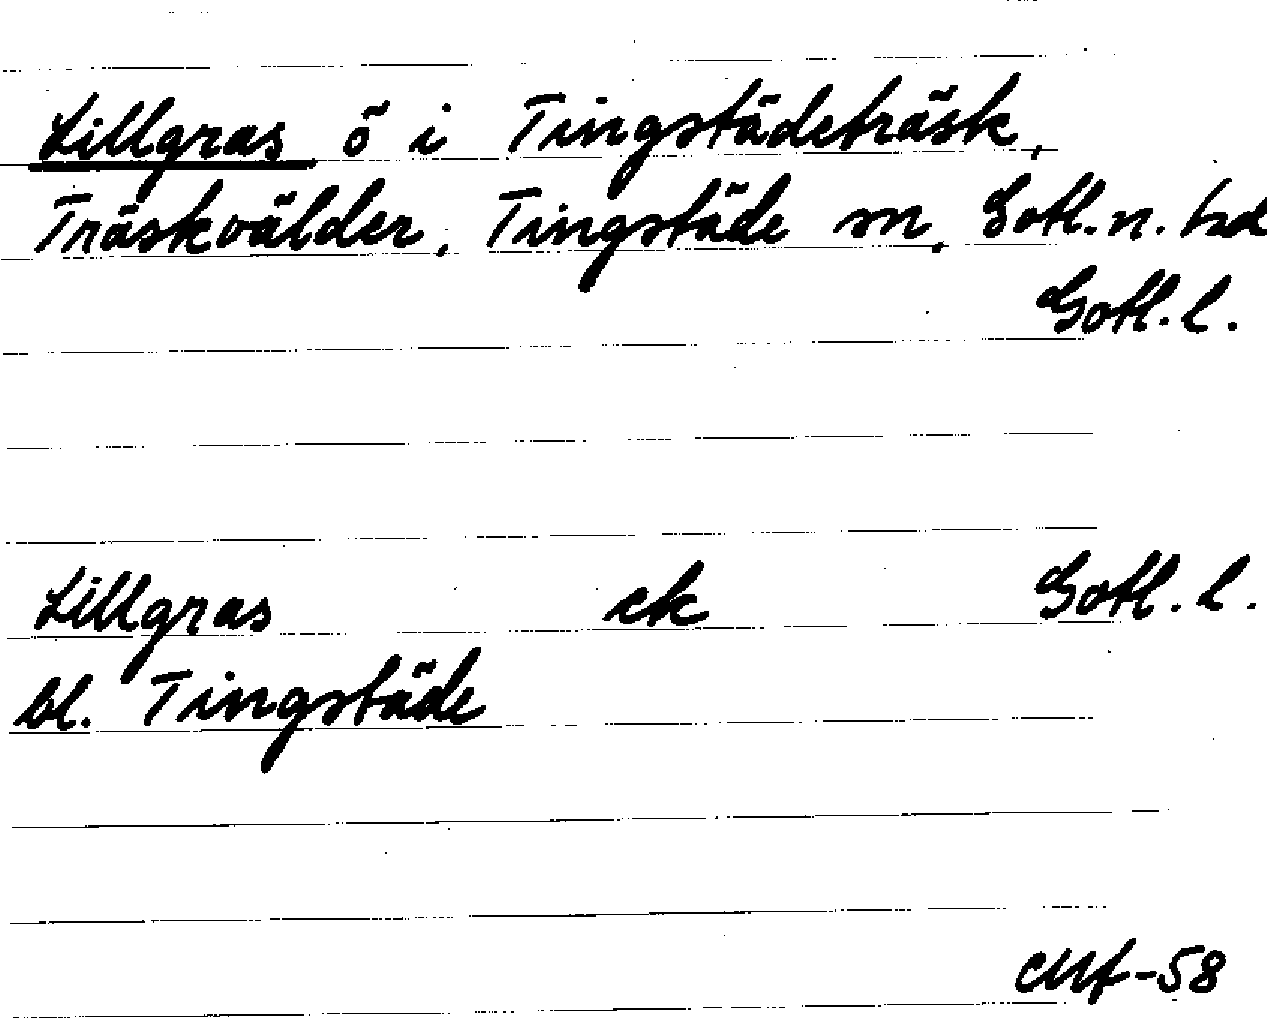 Lillgras ö i Tingstädeträsk,
Träskvälder, Tingstäde sn, Gotl. n. hd
Gotl. l.
Lillgras ek Gotl. l.
bl. Tingstäde
CMf-58